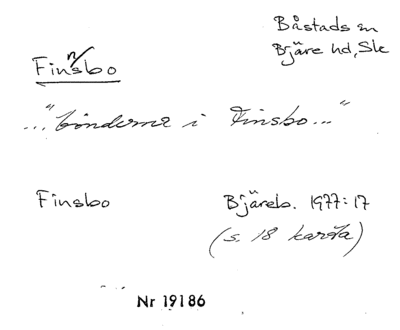 Båstads sn
Bjäre hd, Sk
Finnsbo
..."bönderna i Finsbo..."
Finsbo
Bjäreb. 1977:17
(s. 18 karta)
Nr 19186